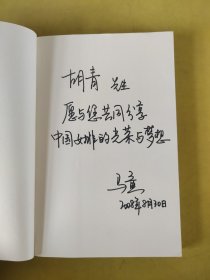 胡青 先生
愿与您共同分享
中国女排的光荣与梦想
马寅
2008年8月30日